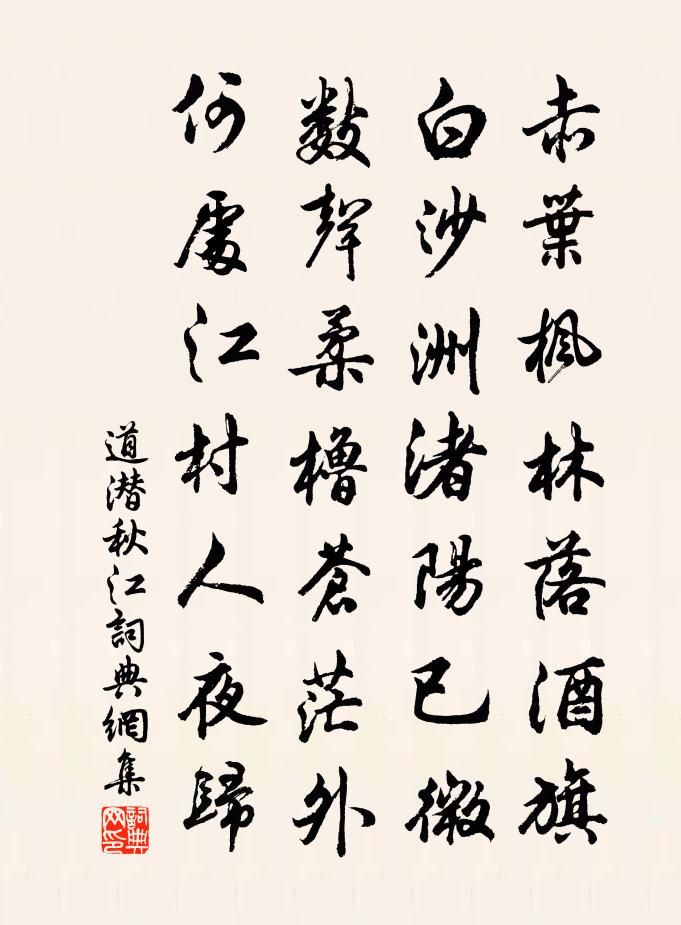 赤葉楓林落酒旗
白沙洲渚陽已微
數聲柔櫓蒼茫外
何處江村人夜歸
道潜秋江詞典網集
詞典网印